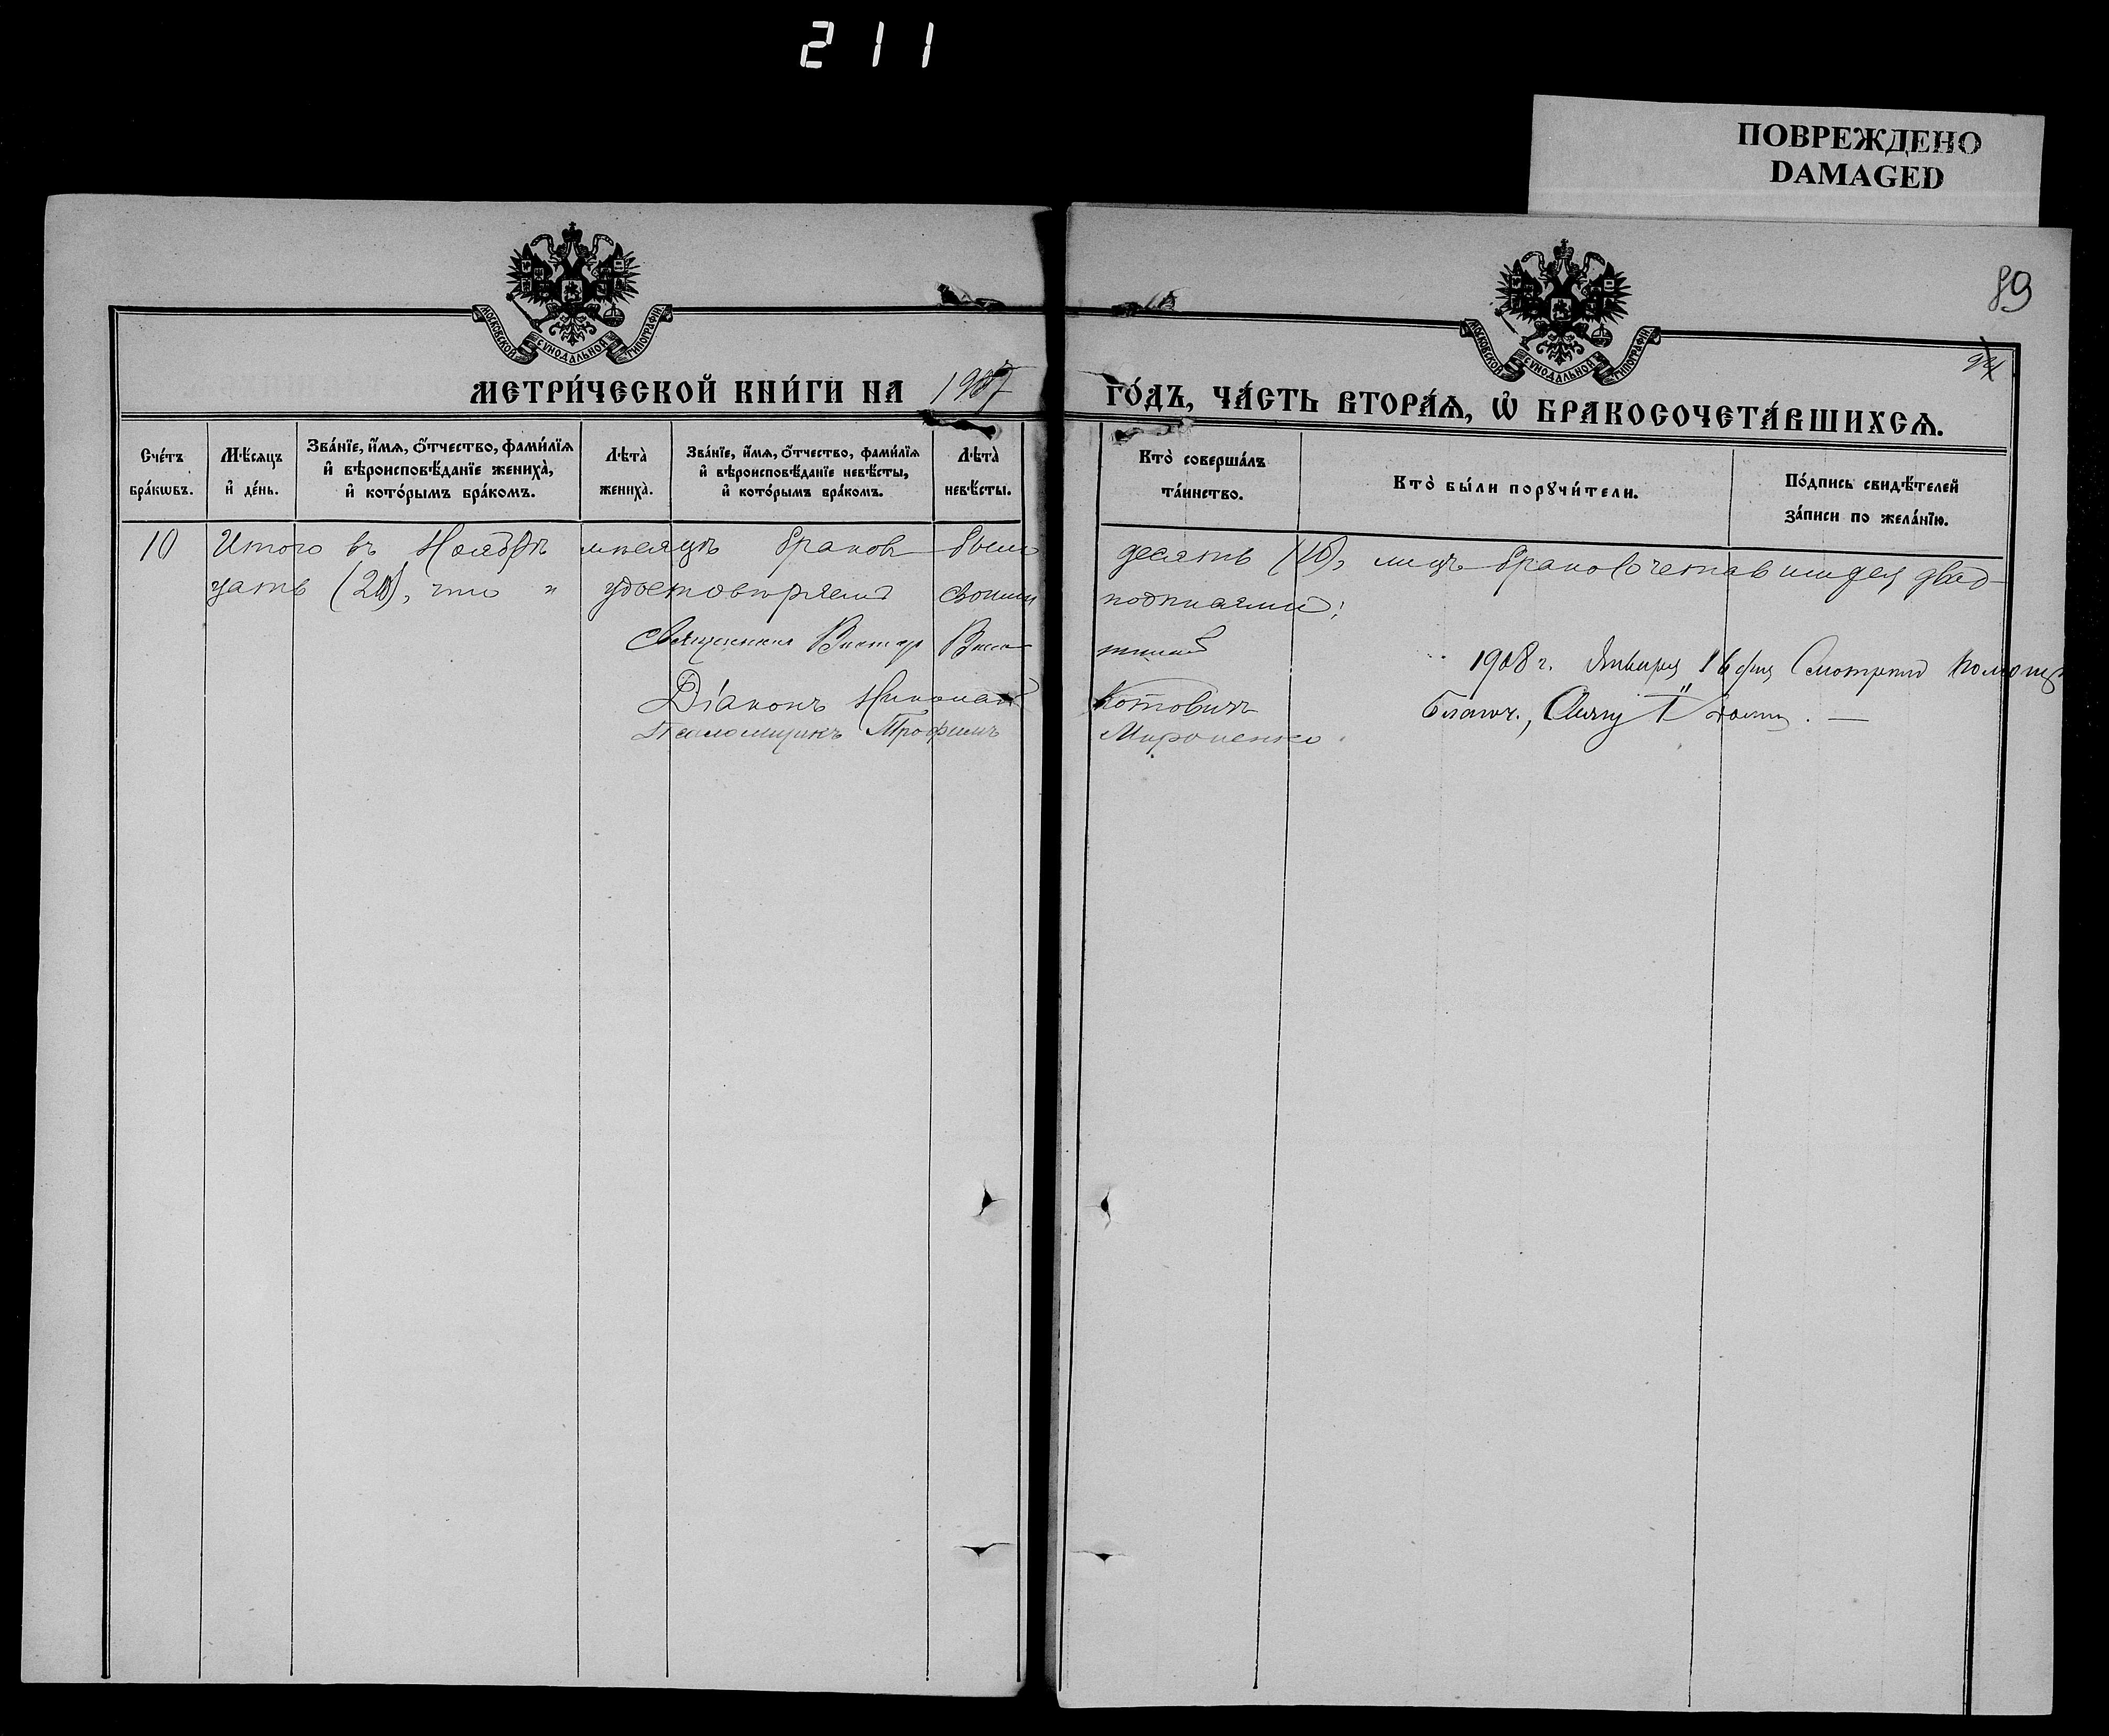 211
ПОВРЕЖДЕНО
DAMAGED
89
94
МОСКОВСКОЙ СѴНОДАЛЬНОЙ ТИПОГРАФІИ
МОСКОВСКОЙ СѴНОДАЛЬНОЙ ТИПОГРАФІИ
МЕТРИ́ЧЕСКОЙ КНИ́ГИ НА 1907 ГО́ДЪ, ЧА́СТЬ ВТОРА́Ѧ, Ѡ҆ БРАКОСОЧЕТА́ВШИХСѦ.
Сче́тъ бра́кѡвъ.
Мѣ́сяцъ и҆ де́нь.
Зва́нїе, и҆́мѧ, ѻ҆́тчество, фами́лїѧ и҆ вѣроисповѣ́данїе жениха̀, и҆ кото́рымъ бра́комъ.
Лѣта̀ жениха̀.
Зва́нїе, и҆́мѧ, ѻ҆́тчество, фами́лїѧ и҆ вѣроисповѣ́данїе невѣ́сты, и҆ кото́рымъ бра́комъ.
Лѣта̀ невѣ́сты.
Кто̀ соверша́лъ та́инство.
Кто̀ бы́ли порꙋчи́тели.
По́дпись свидѣ́телей за́писи по жела́нїю.
10 Итого въ Ноябрѣ мѣсяцѣ браковъ было десять (10), лицъ бракосочетавшихся двад-
цать (20), что и удостовѣряемъ своими подписями:
Священникъ Викторъ
Діаконъ Николай Котовичъ
Псаломщикъ Трофимъ Мироненко.
1908 г. Января 16 дня Смотрѣлъ помощ.
Благоч., Свящ.